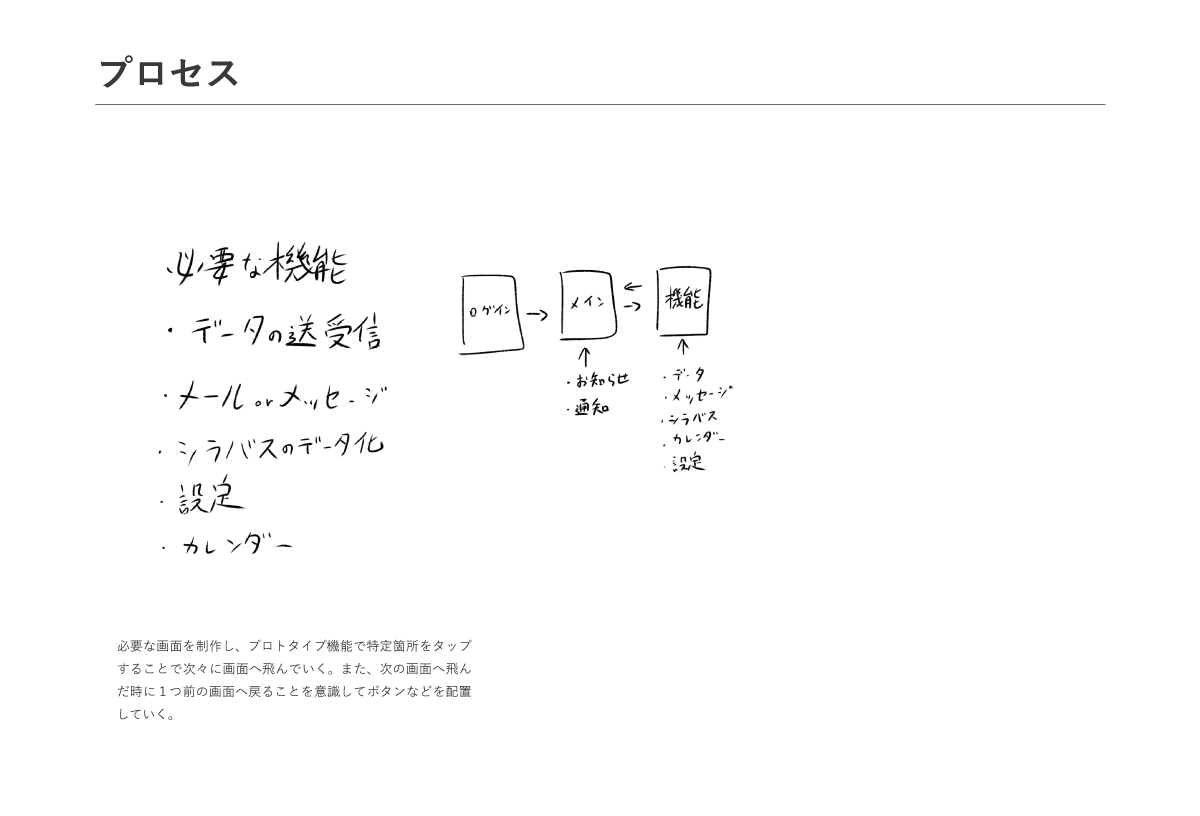 プロセス
必要な機能
・データの送受信
・メール or メッセージ
・シラバスのデータ化
・設定
・カレンダー
ログイン
メイン
・お知らせ
・通知
機能
・データ
・メッセージ
・シラバス
・カレンダー
・設定
必要な画面を制作し、プロトタイプ機能で特定箇所をタップ
することで次々に画面へ飛んでいく。また、次の画面へ飛ん
だ時に１つ前の画面へ戻ることを意識してボタンなどを配置
していく。